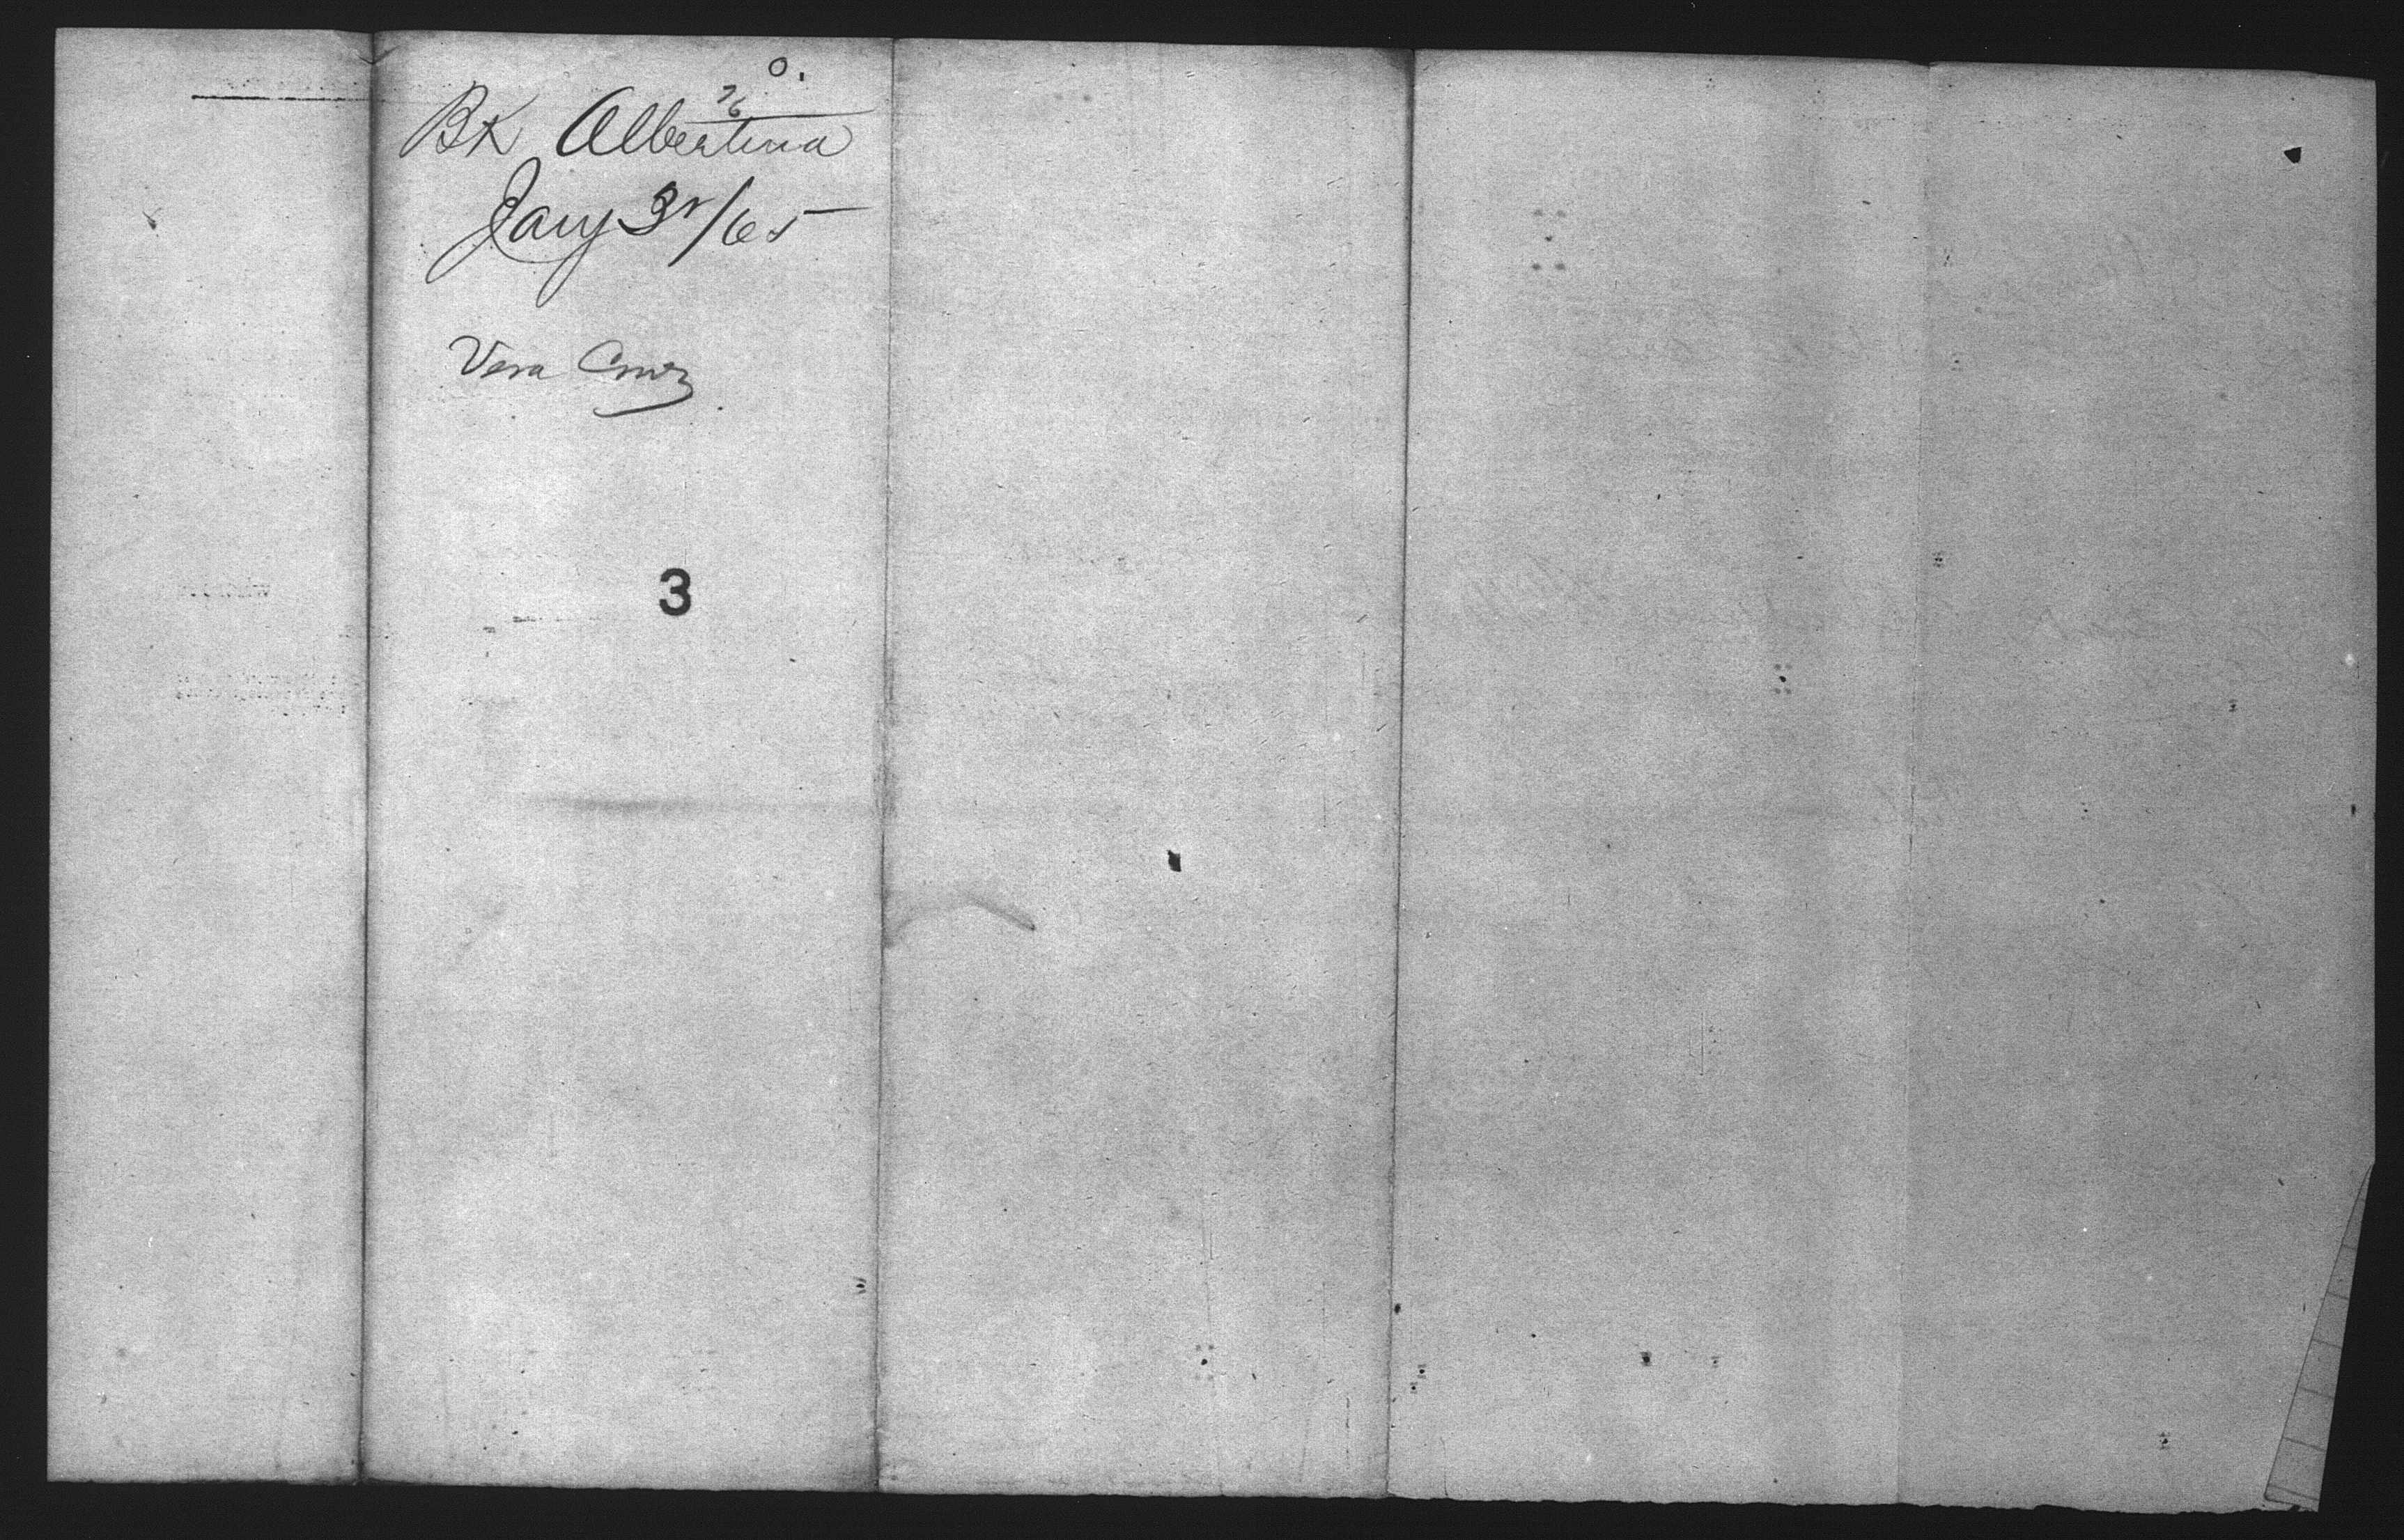 O.
76
Bk Albertina
Jany 3r/65
Vera Cruz
3